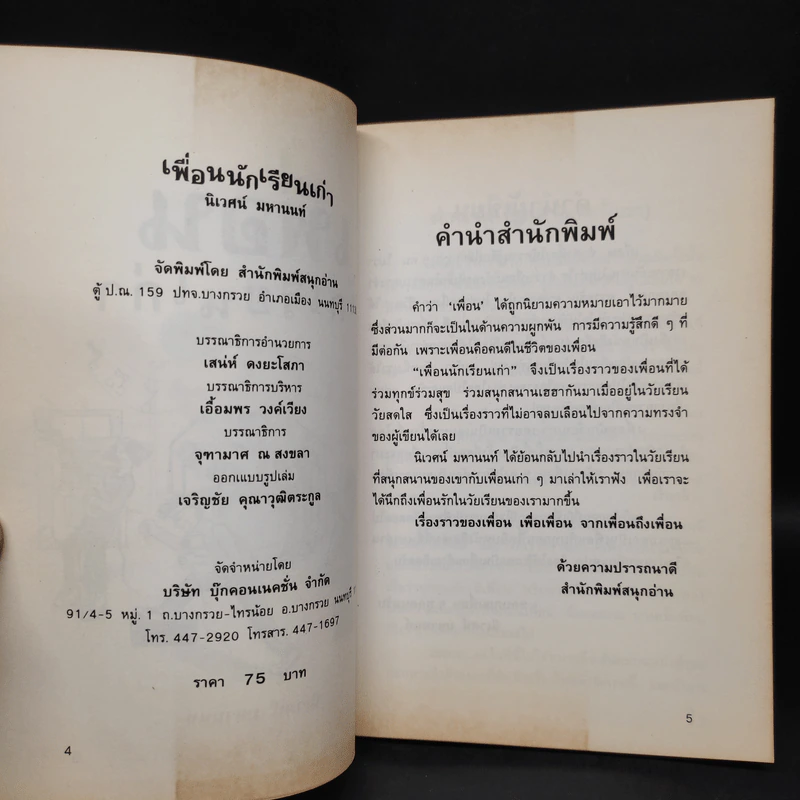 เพื่อนนักเรียนเก่า
นิเวศน์ มหานนท์
จัดพิมพ์โดย สำนักพิมพ์สนุกอ่าน
ตู้ ป.ณ. 159 ปทจ.บางกรวย อำเภอเมือง นนทบุรี
บรรณาธิการอำนวยการ
เสน่ห์ ดงยะโสภา
บรรณาธิการบริหาร
เอื้อมพร วงค์เวียง
บรรณาธิการ
จุฑามาศ ณ สงขลา
ออกแบบรูปเล่ม
เจริญชัย คุณาวุฒิตระกูล
จัดจำหน่ายโดย
บริษัท บุ๊กคอนเนคชั่น จำกัด
91/4-5 หมู่. 1 ถ.บางกรวย-ไทรน้อย อ.บางกรวย นนทบุรี
โทร. 447-2920 โทรสาร. 447-1697
ราคา 75 บาท
4
คำนำสำนักพิมพ์
คำว่า ‘เพื่อน’ ได้ถูกนิยามความหมายเอาไว้มากมาย
ซึ่งส่วนมากก็จะเป็นในด้านความผูกพัน การมีความรู้สึกดี ๆ ที่
มีต่อกัน เพราะเพื่อนคือคนดีในชีวิตของเพื่อน
“เพื่อนนักเรียนเก่า” จึงเป็นเรื่องราวของเพื่อนที่ได้
ร่วมทุกข์ร่วมสุข ร่วมสนุกสนานเฮฮากันมาเมื่ออยู่ในวัยเรียน
วัยสดใส ซึ่งเป็นเรื่องราวที่ไม่อาจลบเลือนไปจากความทรงจำ
ของผู้เขียนได้เลย
นิเวศน์ มหานนท์ ได้ย้อนกลับไปนำเรื่องราวในวัยเรียน
ที่สนุกสนานของเขากับเพื่อนเก่า ๆ มาเล่าให้เราฟัง เพื่อเราจะ
ได้นึกถึงเพื่อนรักในวัยเรียนของเรามากขึ้น
เรื่องราวของเพื่อน เพื่อเพื่อน จากเพื่อนถึงเพื่อน
ด้วยความปรารถนาดี
สำนักพิมพ์สนุกอ่าน
5